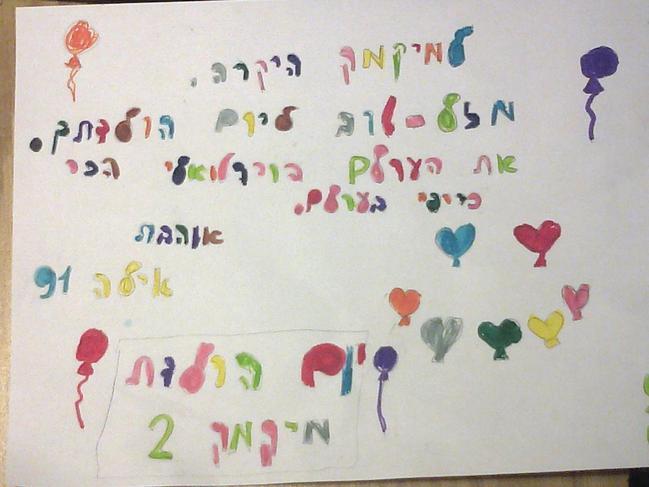 למיקמק היקרה,
מזל-טוב ליום הולדתך.
את העולם הוירטואלי הכי
כייפי בעולם.
אוהבת
אילה 91
יום הולדת
מיקמק 2